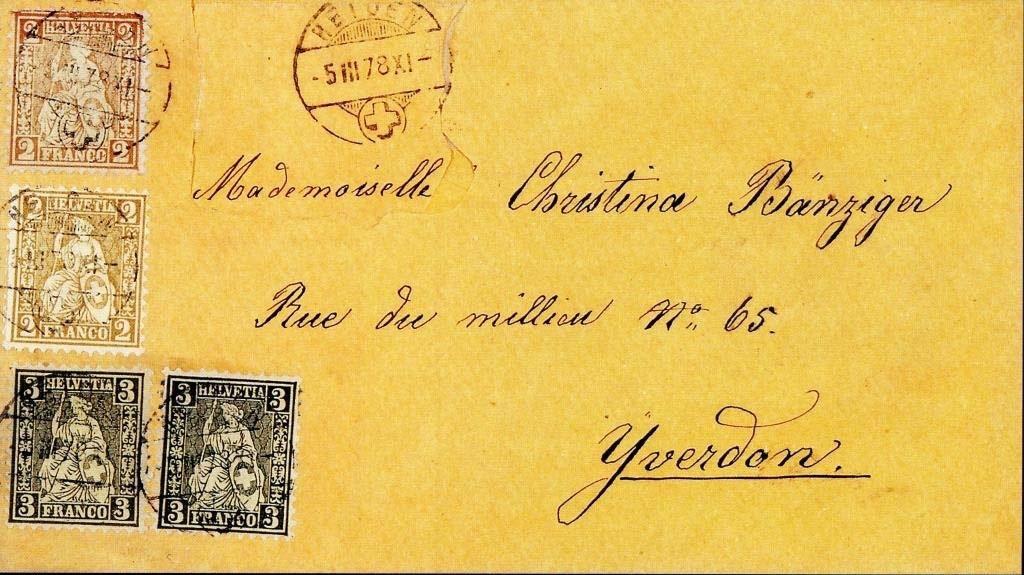 2 HELVETIA 2
2 FRANCO 2
HEIDEN
- 5 III 78 XI -
Mademoiselle Christina Bänziger
2 HELVETIA 2
2 FRANCO 2
Rue du millieu No. 65.
3 HELVETIA 3
3 FRANCO 3
3 HELVETIA 3
3 FRANCO 3
Yverdon.